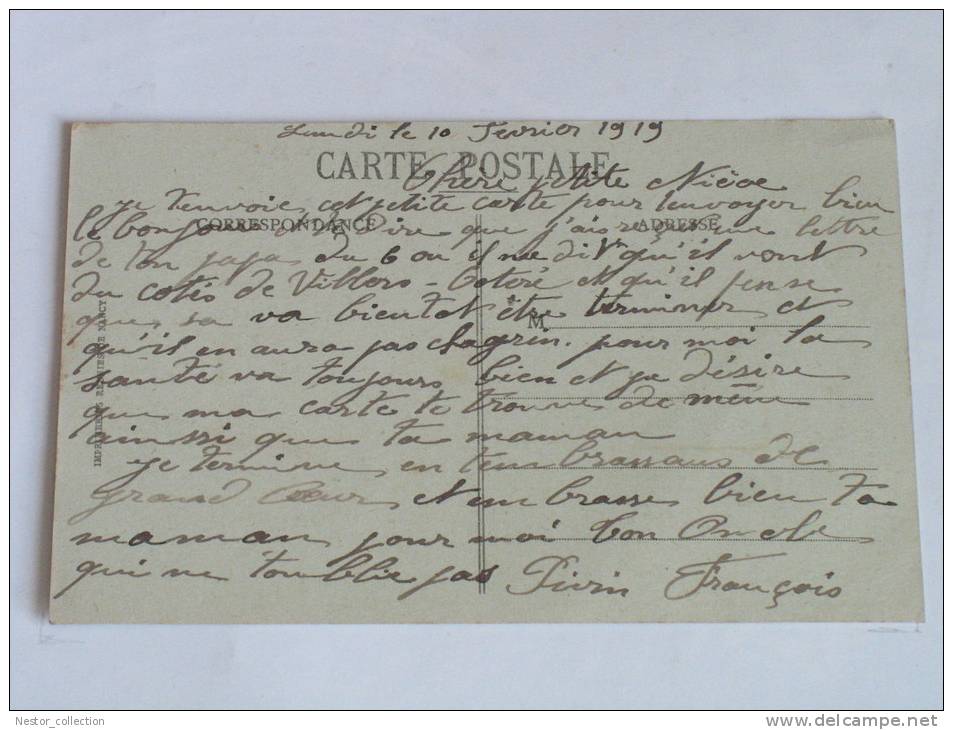 Lundi le 10 Fevrier 1919
CARTE POSTALE
Chère petite Nièce
je t'envoie cet petite carte pour t'envoyer bien
CORRESPONDANCE ADRESSE
le bonjour et dire que j'ais reçu une lettre
de ton papa du 6 ou il me dit qu'il vont
du cotés de Villers - et qu'il pense
que sa va bientot être terminer et
M
qu'il en aura pas chagrin. pour moi la
santé va toujours bien et je désire
que ma carte te trouve de même
ainsi que ta maman
je termine en tembrassans de
grand Cœur et embrasse bien ta
maman pour moi ton Oncle
qui ne toublie pas Pivin François
IMPRIMERIES REUNIES DE NANCY
Nestor_collection
www.delcampe.net